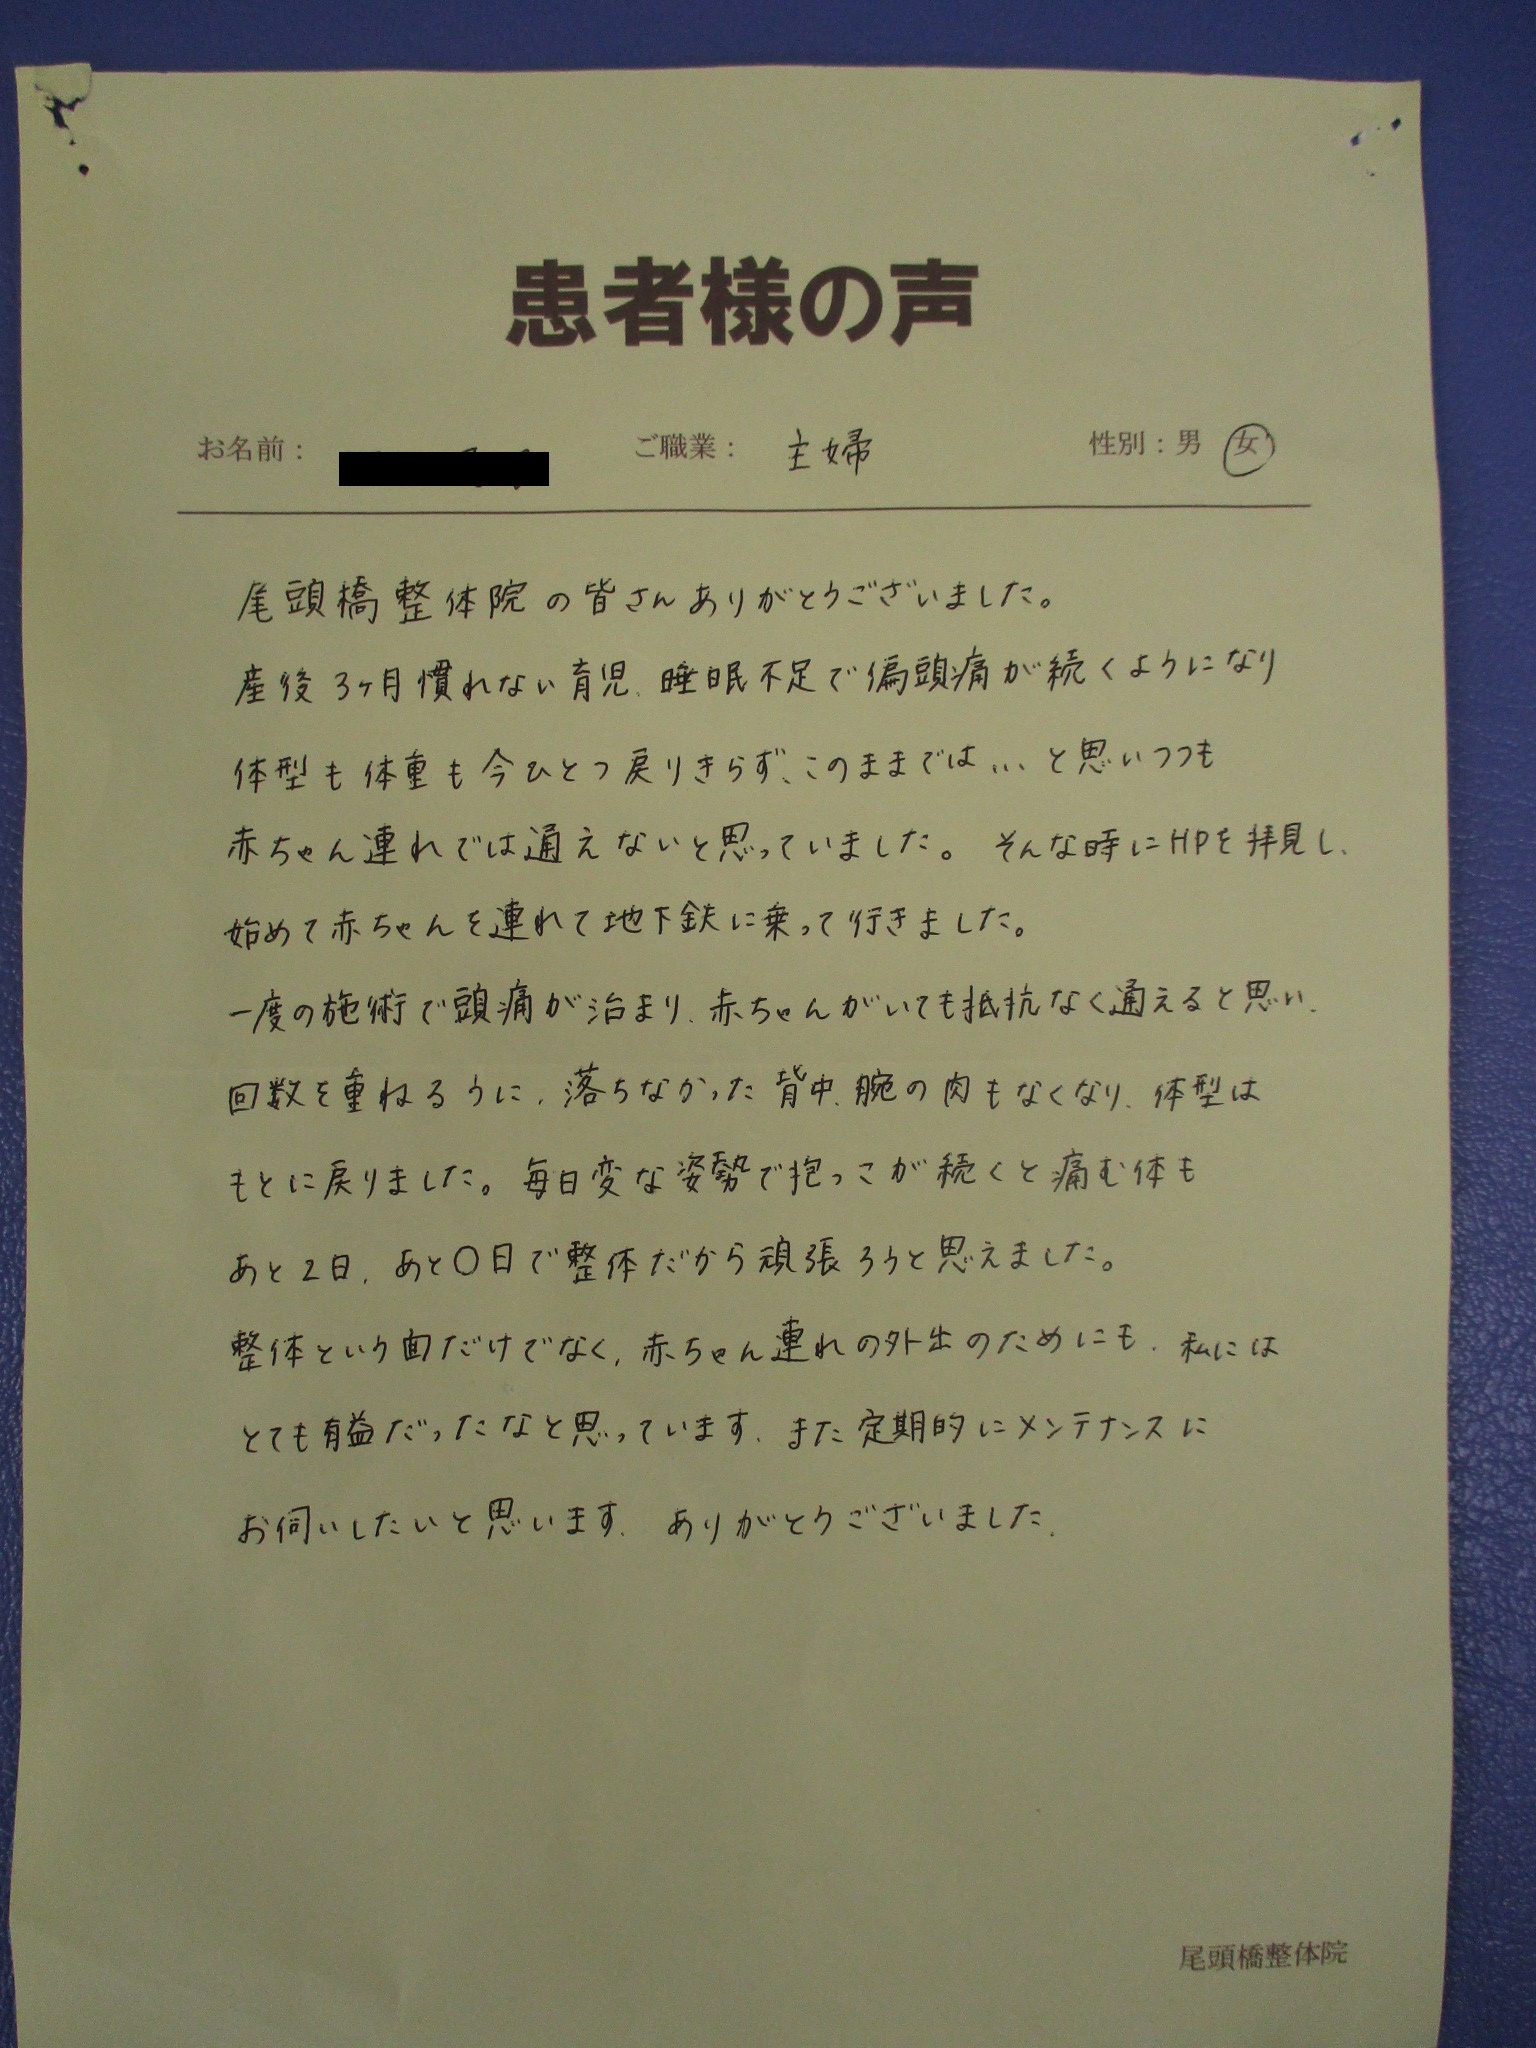 患者様の声
お名前： ご職業： 主婦 性別：男 女
尾頭橋整体院の皆さんありがとうございました。
産後3ヶ月慣れない育児、睡眠不足で偏頭痛が続くようになり
体型も体重も今ひとつ戻りきらず、このままでは…と思いつつも
赤ちゃん連れでは通えないと思っていました。そんな時にHPを拝見し、
始めて赤ちゃんを連れて地下鉄に乗って行きました。
一度の施術で頭痛が治まり、赤ちゃんがいても抵抗なく通えると思い、
回数を重ねるうに、落ちなかった背中、腕の肉もなくなり、体型は
もとに戻りました。毎日変な姿勢で抱っこが続くと痛む体も
あと2日、あと〇日で整体だから頑張ろうと思えました。
整体という面だけでなく、赤ちゃん連れの外出のためにも、私には
とても有益だったなと思っています。また定期的にメンテナンスに
お伺いしたいと思います。ありがとうございました。
尾頭橋整体院